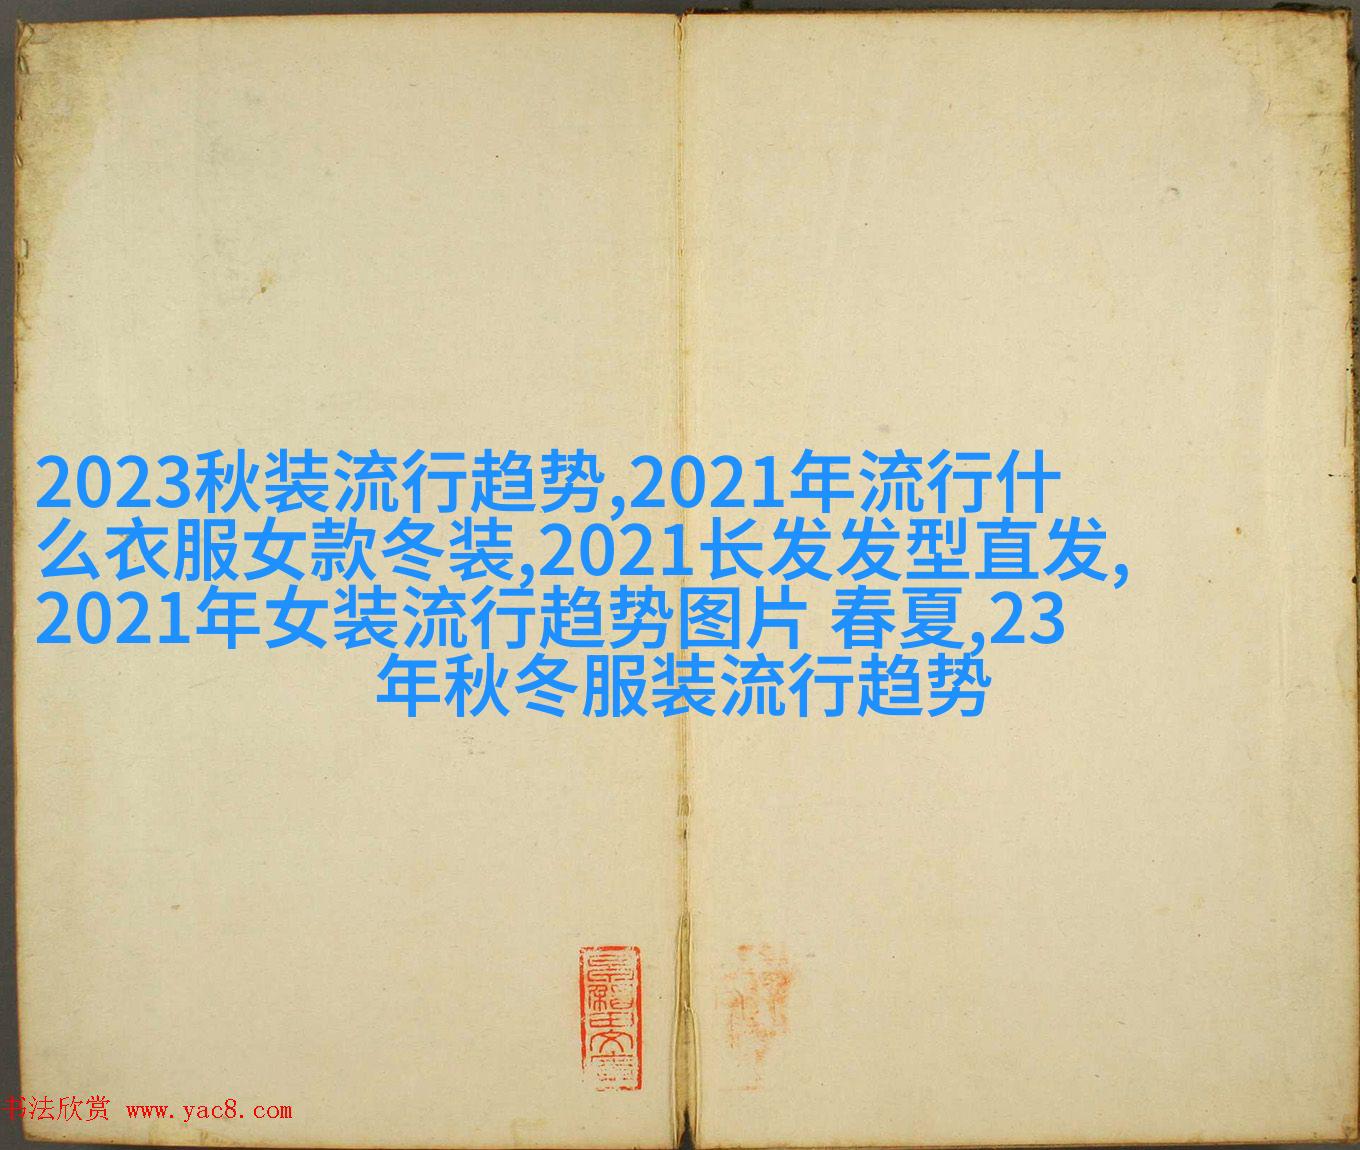 2023秋装流行趋势,2021年流行什
么衣服女款冬装,2021长发发型直发,
2021年女装流行趋势图片 春夏,23
年秋冬服装流行趋势
书法欣赏 www.yac8.com